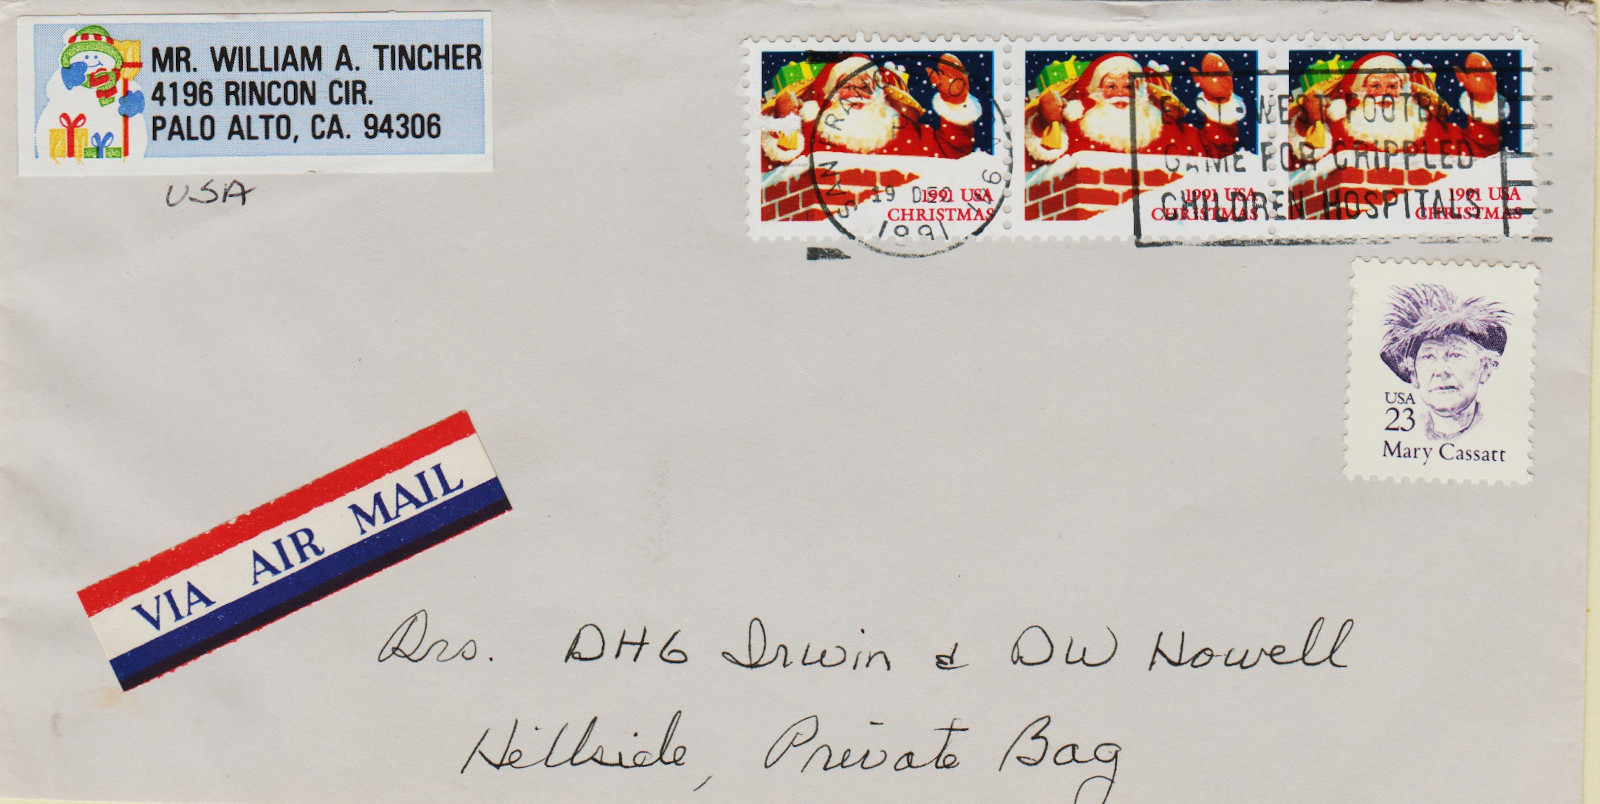 MR. WILLIAM A. TINCHER
4196 RINCON CIR.
PALO ALTO, CA. 94306
USA
1991 USA
CHRISTMAS
1991 USA
CHRISTMAS
1991 USA
CHRISTMAS
SAN FRANC
19 DEC
1991
EAST-WEST FOOTBALL
GAME FOR CRIPPLED
CHILDREN HOSPITALS
USA
23
Mary Cassatt
VIA AIR MAIL
Drs. DHG Irwin & DW Howell
Hillside, Private Bag